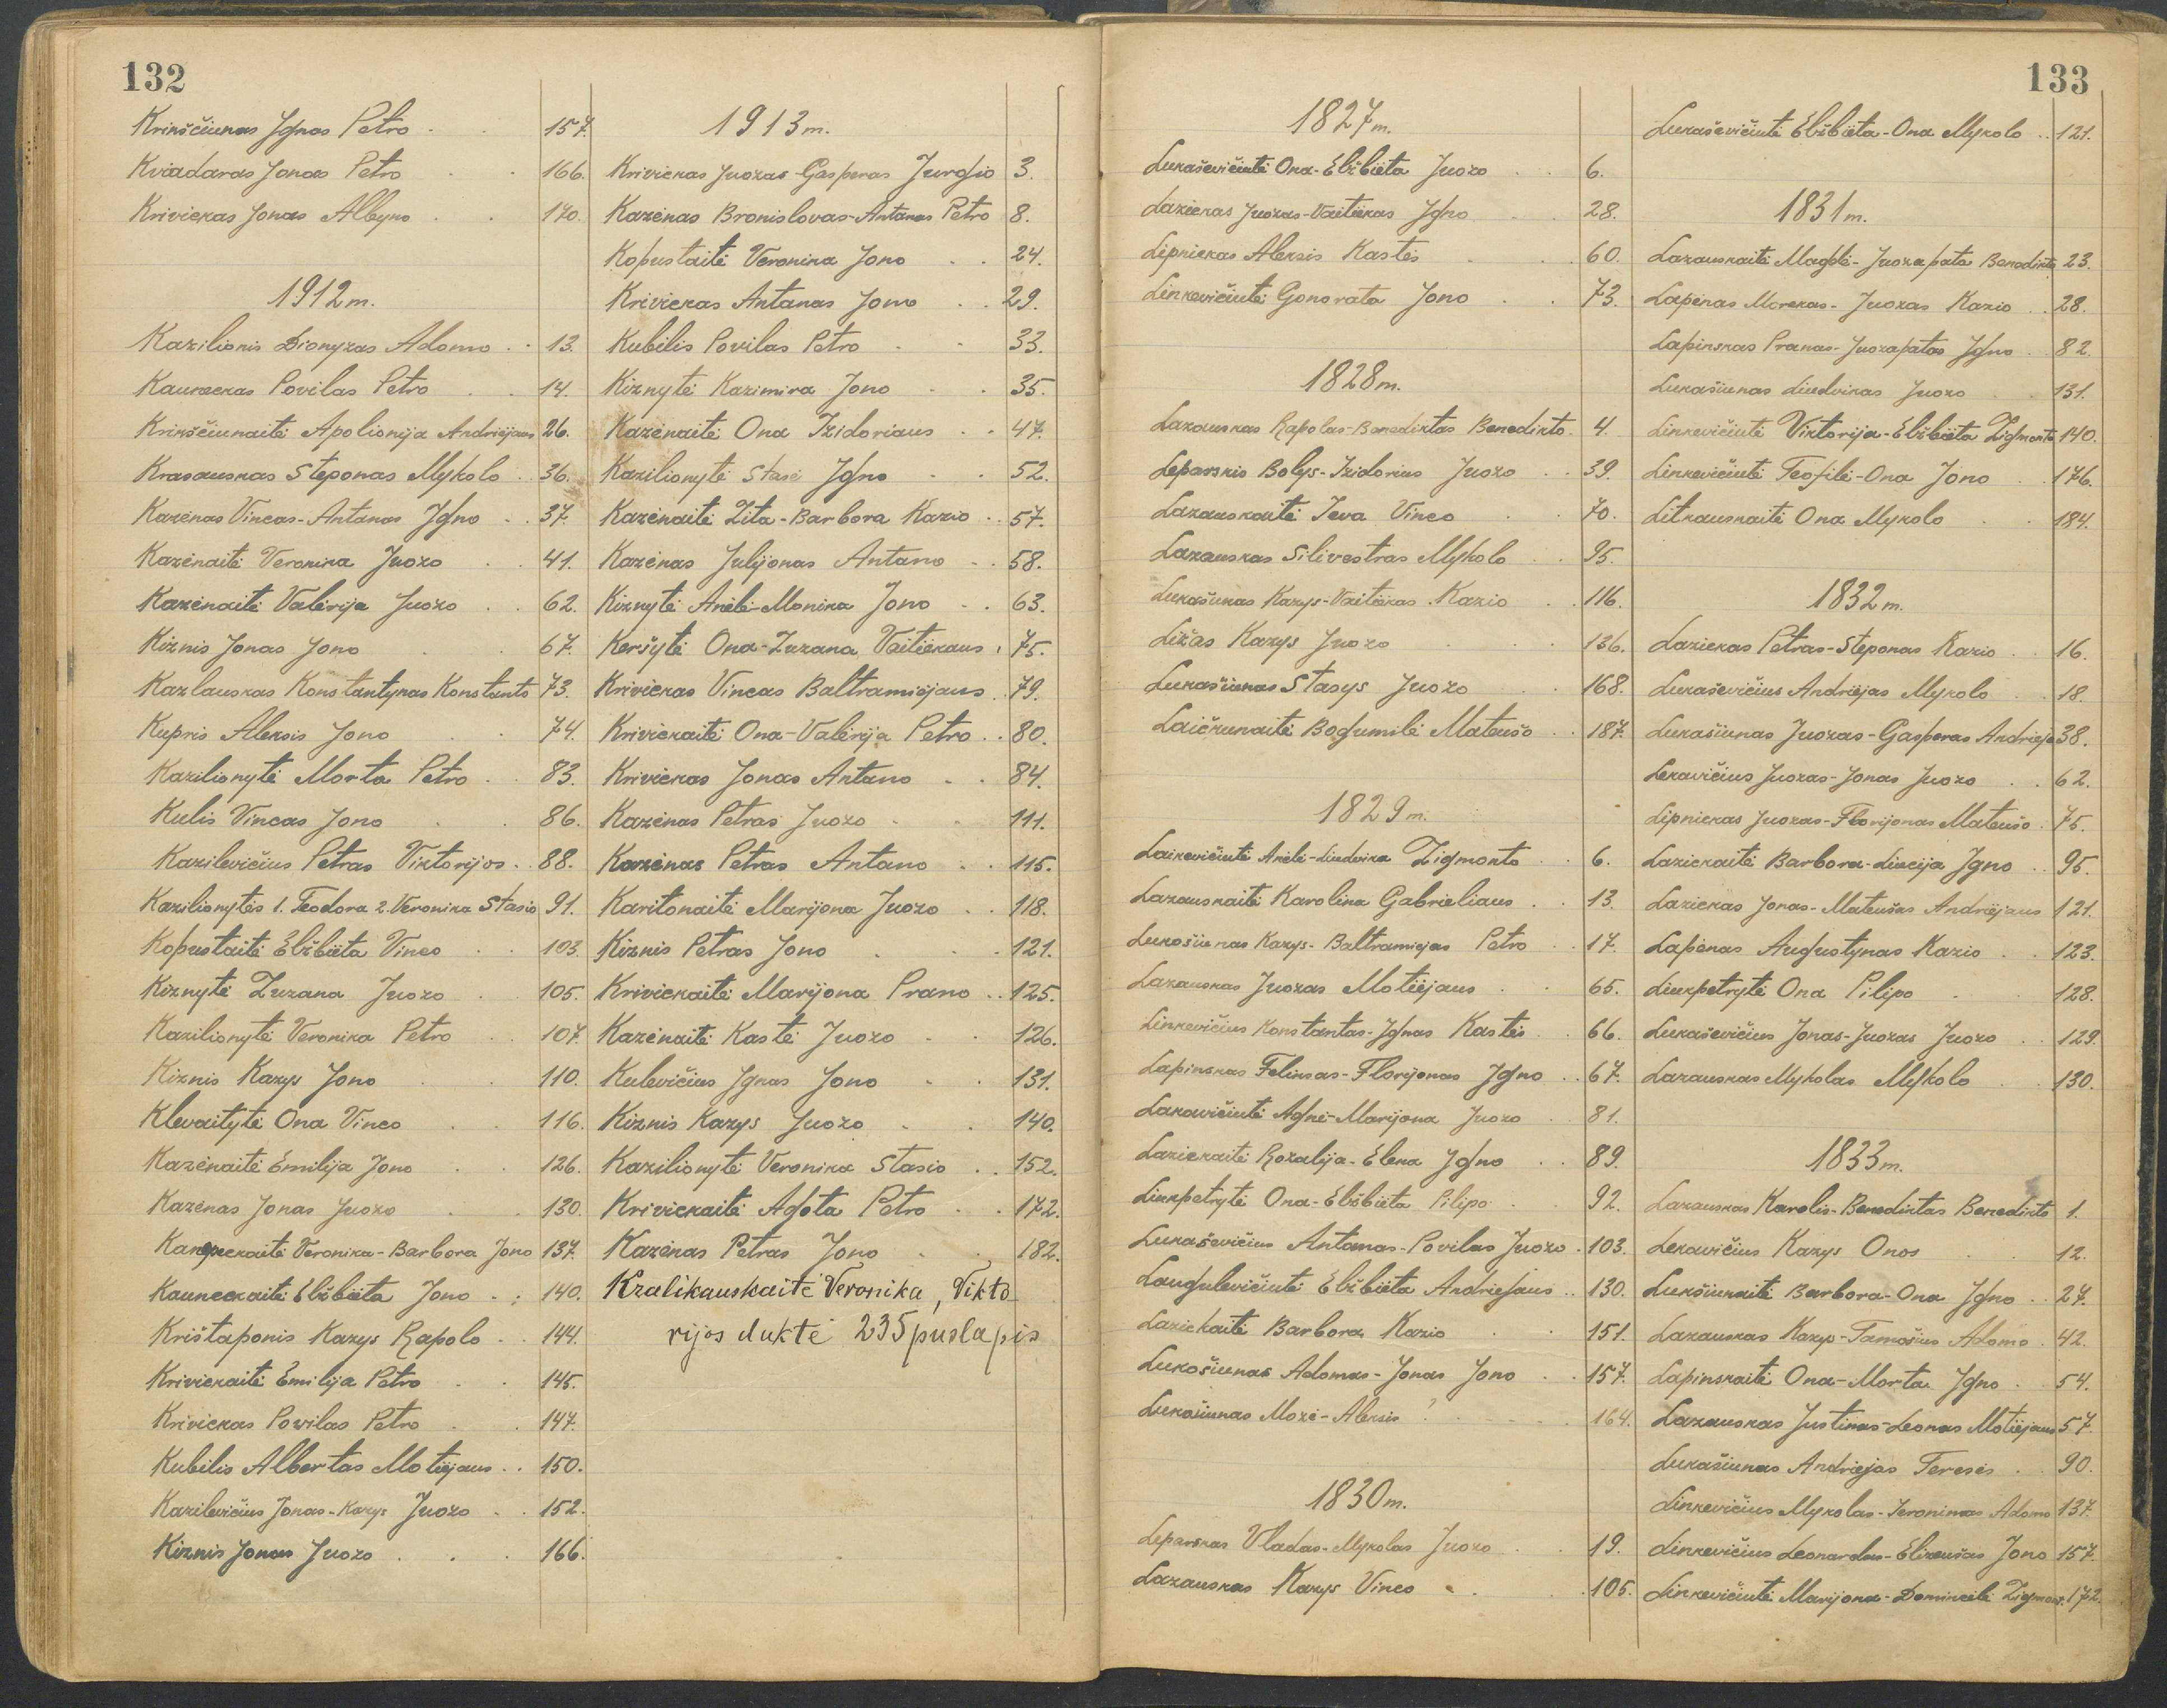 132
Krinščiunas Jgnas Petro 157.
Kviadaras Jonas Petro 166.
Krivickas Jonas Albyno 170.
1912 m.
Kazilionis Dionyzas Adomo 13.
Kauneckas Povilas Petro 14.
Krinsčiunaitė Apolionija Andriejaus 26.
Krasauskas Steponas Mykolo 36.
Kazėnas Vincas-Antanas Jgno 37.
Kazėnaitė Veronika Juozo 41.
Kazėnaitė Valerija Juozo 62.
Kiznis Jonas Jono 67.
Kazlauskas Konstantynas Konstanto 73.
Kupris Aleksis Jono 74.
Kazilionytė Morta Petro 83.
Kulis Vincas Jono 86.
Kazilevičius Petras Viktorijos 88.
Kazilionytės 1. Teodora 2. Veronika Stasio 91.
Kopustaitė Elžbieta Vinco 103.
Kiznytė Zuzana Juozo 105.
Kazilionytė Veronika Petro 107.
Kiznis Kazys Jono 110.
Klevaitytė Ona Vinco 116.
Kazėnaitė Emilija Jono 126.
Kazėnas Jonas Juozo 130.
Veronika-Barbora Jono 137.
Kauneckaitė Elžbieta Jono 140.
Krištaponis Kazys Rapolo 144.
Krivickaitė Emilija Petro 145.
Krivickas Povilas Petro 147.
Kubilis Albertas Motiejaus 150.
Kazilevičius Jonas-Kazys Juozo 152.
Kiznis Jonas Juozo 166.
1913 m.
Krivickas Juozas-Gasperas Jurgio 3.
Kazėnas Bronislovas-Antanas Petro 8.
Kopustaitė Veronika Jono 24.
Krivickas Antanas Jono 29.
Kubilis Povilas Petro 33.
Kiznytė Kazimira Jono 35.
Kazėnaitė Ona Izidoriaus 47.
Kazilionytė Stasė Jgno 52.
Kazėnaitė Zita-Barbora Kazio 57.
Kazėnas Julijonas Antano 58.
Kiznytė Anėlė-Monika Jono 63.
Keršytė Ona-Zuzana Vaitiekaus 75.
Krivickas Vincas Baltramiejaus 79.
Krivickaitė Ona-Valerija Petro 80.
Krivickas Jonas Antano 84.
Kazėnas Petras Juozo 111.
Kazėnas Petras Antano 115.
Karitonaitė Marijona Juozo 118.
Kiznis Petras Jono 121.
Krivickaitė Marijona Prano 125.
Kazėnaitė Kastė Juozo 126.
Kulevičius Jgnas Jono 131.
Kiznis Kazys Juozo 140.
Kazilionytė Veronika Stasio 152.
Krivickaitė Agota Petro 172.
Kazėnas Petras Jono 182.
Kralikauskaitė Veronika, Vikto-
rijos duktė 235 puslapis
133
1827 m.
Lukaševičiutė Ona-Elžbieta Juozo 6.
Lazickas Juozas-Vaitiekas Jgno 28.
Lipnickas Aleksis Kastės 60.
Linkevičiutė Gonorata Jono 73.
1828 m.
Lazauskas Rapolas-Benediktas Benedikto 4.
Leparskis Bolys-Izidorius Juozo 39.
Lazauskaitė Ieva Vinco 70.
Lazauskas Silivestras Mykolo 95.
Lukašunas Kazys-Vaitiekas Kazio 116.
Ližas Kazys Juozo 136.
Lukašiunas Stasys Juozo 168.
Laičkunaitė Bogumilė Mateušo 187.
1829 m.
Lainevičiutė Anėlė-Liudvika Zigmonto 6.
Lazauskaitė Karolina Gabrieliaus 13.
Lukošiunas Kazys-Baltramiejas Petro 17.
Lazauskas Juozas Motiejaus 65.
Linkevičius Konstantas-Jgnas Kastės 66.
Lapinskas Feliksas-Florijonas Jgno 67.
Lakavičiutė Agnė-Marijona Juozo 81.
Lazickaitė Rozalija-Elena Jgno 89.
Liukpetrytė Ona-Elžbieta Pilipo 92.
Lukaševičius Antanas-Povilas Juozo 103.
Laugulevičiutė Elžbieta Andriejaus 130.
Lazickaitė Barbora Kazio 151.
Lukošiunas Adomas-Jonas Jono 157.
Lukošiunas Mozė-Aleksis ? 164.
1830 m.
Leparskas Vladas-Mykolas Juozo 19.
Lazauskas Kazys Vinco 105.
Lukaševičiutė Elžbieta-Ona Mykolo 121.
1831 m.
Lazauskaitė Magdė-Juozapata Benedikto 23.
Lapėnas Morkas-Juozas Kazio 28.
Lapinskas Pranas-Juozapatas Jgno 82.
Lukašiunas Liudvikas Juozo 131.
Linkevičiutė Viktorija-Elžbieta Zigmonto 140.
Linkevičiutė Teofilė-Ona Jono 176.
Litkauskaitė Ona Mykolo 184.
1832 m.
Lazickas Petras-Steponas Kazio 16.
Lukaševičius Andriejas Mykolo 18.
Lukašiunas Juozas-Gasperas Andriejo 38.
Lekavičius Juozas-Jonas Juozo 62.
Lipnickas Juozas-Florijonas Mateušo 75.
Lazickaitė Barbora-Liucija Jgno 95.
Lazickas Jonas-Mateušas Andriejaus 121.
Lapėnas Augustynas Kazio 123.
Liukpetrytė Ona Pilipo 128.
Lukaševičius Jonas-Juozas Juozo 129.
Lazauskas Mykolas Mykolo 130.
1833 m.
Lazauskas Karolis-Benediktas Benedikto 1.
Lekavičius Kazys Onos 12.
Lukšiunaitė Barbora-Ona Jgno 27.
Lazauskas Kazys-Tamošius Adomo 42.
Lapinskaitė Ona-Morta Jgno 54.
Lazauskas Justinas-Leonas Motiejaus 57.
Lukašiunas Andriejas Teresės 90.
Linkevičius Mykolas-Jeronimas Adomo 137.
Linkevičius Leonardas-Elizeušas Jono 157.
Linkevičiutė Marijona-Domicelė Zigmon. 172.